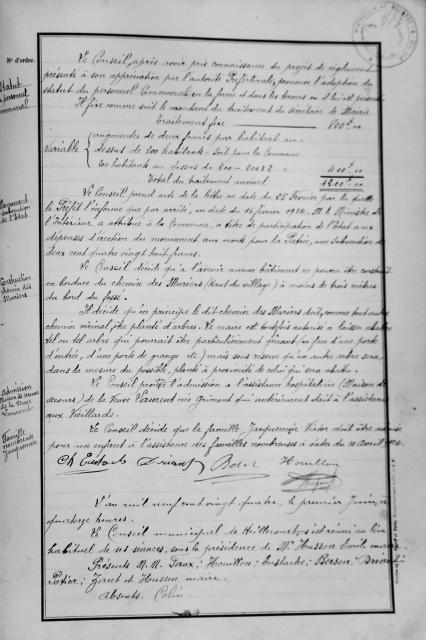 Nos d'ordre.
Le Conseil, après avoir pris connaissance du projet de règlement
présenté à son appréciation par l'autorité Préfectorale, prononce l'adoption du
Statut du personnel Communal en la forme et dans les termes où il lui est présenté
Statut
du personnel
communal
Il fixe comme suit le montant du traitement du Secrétaire de Mairie
Traitement fixe 800f,00
Variable { augmentés de deux francs par habitant au-
dessus de 200 habitants - Soit pour la Commune
200 habitants au dessus de 200 - 200x2 = 400f,00
Total du traitement annuel 1200f,00
Le Conseil prend acte de la lettre en date du 25 Février par laquelle
le Préfet l'informe que par arrêté, en date du 16 février 1924, M. le Ministre de
l'Intérieur a attribué à la Commune, à titre de participation de l'Etat aux
dépenses d'érection du monument aux morts pour la Patrie, une Subvention de
deux cent quatre vingt huit francs.
Monument
subvention
de l'Etat
Le Conseil décide qu'à l'avenir aucun bâtiment ne pourra être construit
en bordure du chemin des Mariers (Haut du village) à moins de trois mètres
du bord du fossé.
Construction
chemin des
Mariers
Il décide qu'en principe le dit chemin des Mariers doit, comme tout autre
chemin vicinal, être planté d'arbres. Le maire est toutefois autorisé à laisser abattre
tel ou tel arbre qui pourrait être particulièrement gênant (en face d'une porte
d'entrée, d'une porte de grange etc) mais sous réserve qu'un autre arbre sera
dans la mesure du possible, planté à proximité de celui qui sera abattu.
Le Conseil l'admission à l'assistance hospitalière (Maison de
secours) de la Veuve Laurent née Grimont qui antérieurement était à l'assistance
aux Vieillards.
Admission
Maison de secours
de la Veuve
Laurent
Le Conseil décide que la famille Jacquemin Victor doit être admise
pour un enfant à l'assistance des familles nombreuses à dater du 10 Avril 1924.
Famille
nombreuse
Jacquemin
Ch Eustache Briant Houillon
L'an mil neuf cent vingt quatre, le premier Juin, à
quatorze heures.
Le Conseil municipal de s'est réuni au lieu
habituel de ses séances, sous la présidence de Mr Husson Emile maire.
Présents M.M. Faux; Houillon; Eustache; Berson; Briant
Potier; Zant et Husson maire.
Absents. Colin